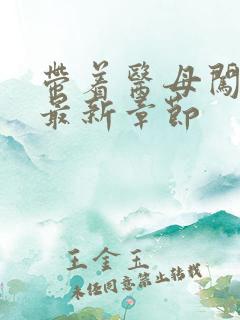 带着医母闯
最新章节
王金玉
未经同意禁止转载